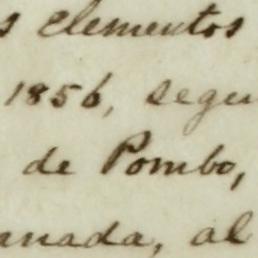 s elementos
1856, segu
de Pombo,
anada, al